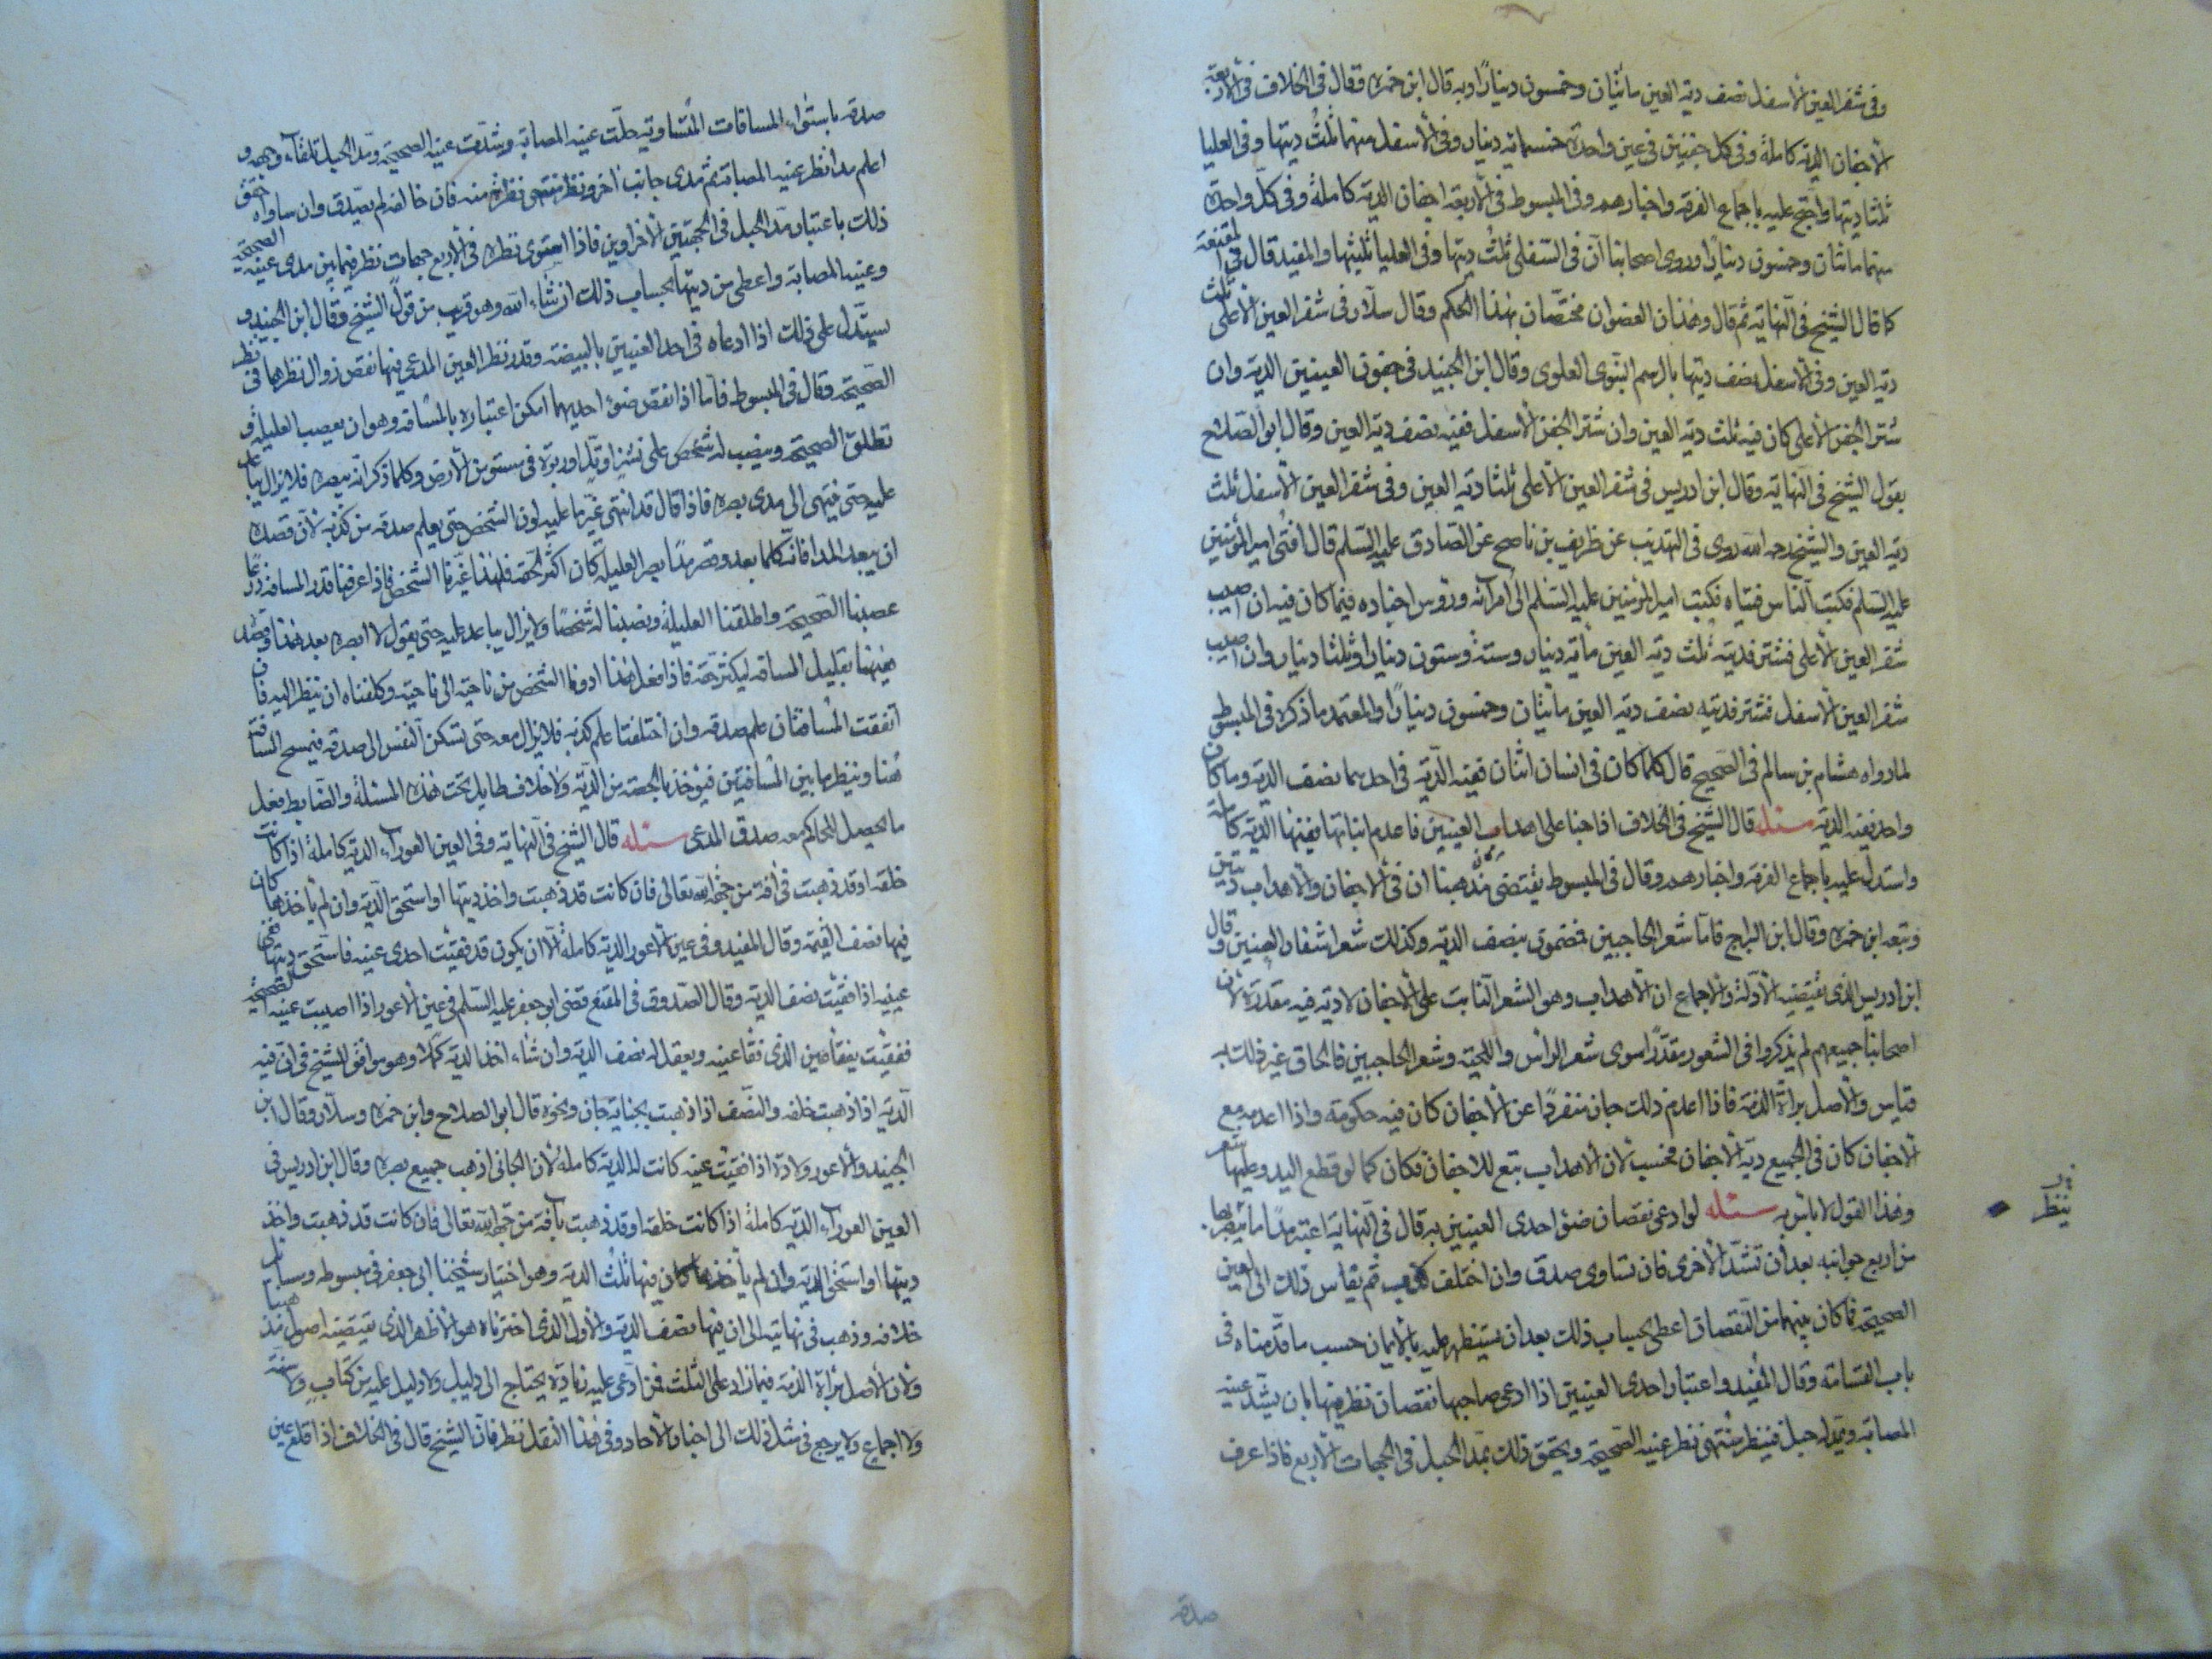 وفى شفر العين الأسفل نصف دية العين مائتان وخمسون دينارا وبه قال ابن حمزه وقال فى الخلاف فى الأربعة
الأجفان الدية كاملة وفى كل جفنين فى عين واحدة خمسمائة دينار وفى الأسفل منهما ثلث ديتها وفى العليا
ثلثا ديتها واحتج عليه باجماع الفرقة واخبارهم وفى المبسوط فى الأربعة اجفان الدية كاملة وفى كل واحدة
منهما مائتان وخمسون دينارا وروى اصحابنا ان فى السفلى ثلث ديتها وفى العليا ثلثيها والمفيد قال فى المقنعة
كما قال الشيخ فى النهاية ثم قال وهذان العضوان مختصان بهذا الحكم وقال سلار فى شفر العين الأعلى ثلث
دية العين وفى الأسفل نصف ديتها بالرسم النبوى العلوى وقال ابن الجنيد فى جفون العينين الدية وان
شتر الجفن الأعلى كان فيه ثلث دية العين وان شتر الجفن الأسفل ففيه نصف دية العين وقال ابو الصلاح
بقول الشيخ فى النهاية وقال ابن ادريس فى شفر العين الأعلى ثلثا دية العين وفى شفر العين الأسفل ثلث
دية العين والشيخ رحمه الله روى فى التهذيب عن ظريف بن ناصح عن الصادق عليه السلم قال افتى امير المؤمنين
عليه السلم فكتب الناس فتياه فكتب امير المؤمنين عليه السلم الى امرائه ورؤس اجناده فيما كان فيه ان اصيب
شفر العين الأعلى فشتر فديته ثلث دية العين مأته دينار وستة وستون دينارا وثلثا دينار وان اصيب
شفر العين الأسفل فشتر فديته نصف دية العين مائتان وخمسون دينارا والمعتمد ما ذكره فى المبسوط
لما رواه هشام بن سالم فى الصحيح قال كلما كان فى انسان اثنان ففيه الدية فى احدهما نصف الدية وما كان
واحد ففيه الدية مسئله قال الشيخ فى الخلاف اذا جنا على اهداب العينين فاعدم انباتها ففيها الدية كاملة
واستدل عليه باجماع الفرقة واخبارهم وقال فى المبسوط يقتضى مذهبنا ان فى الأجفان والأهداب ديتين
وتبعه ابن حمزه وقال ابن البراج فاما شعر الحاجبين فمضمون بنصف الدية وكذلك شعر اشفار العينين وقال
ابن ادريس الذى تقتضيه الأدلة والأجماع ان الأهداب وهو الشعر النابت على الأجفان لا دية فيه مقدرة لأن
اصحابنا جميعهم لم يذكروا فى الشعور مقدرا سوى شعر الرأس واللحية وشعر الحاجبين فالحاق غير ذلك به
قياس والأصل براءة الذمة فاذا اعدم ذلك جان منفردا عن الأجفان كان فيه حكومة واذا اعدمه مع
الأجفان كان فى الجميع دية الأجفان فحسب لأن الأهداب تبع للاجفان فكان كما لو قطع اليد وعليها شعر
وهذا القول لا بأس به مسئله لو ادعى نقصان ضوء احدى العينين به قال فى النهاية اعتبر مدا ما يبصر بها
من اربع جوانبه بعد أن تشد الأخرى فان تساوى صدق وان اختلف كذب ثم يقاس ذلك الى العين
الصحيحة فما كان بينهما من النقصان اعطى بحساب ذلك بعد ان يستظهر عليه بالأيمان حسب ما قدمناه فى
باب القسامة وقال المفيد واعتبار احدى العينين اذا ادعى صاحبها نقصان نظر منها بان يشد عينه
المصابة ويمد له حبل فينظر منتهى نظر عينه الصحيحة ويحقق ذلك بمد الحبل فى الجهات الأربع فاذا عرف
ينظر
صدقه
صدقه باستواء المسافات المتساوية حلت عينه المصابة وشدت عينه الصحيحة ومد الحبل تلقاء وجهه و
اعلم مدا نظر عينه المصابة ثم مدى جانب اخر ونظر منتهى نظره منه فان خالف لم يصدق وان ساواه حقق
ذلك باعتبار مد الحبل فى الجهتين الأخراوين فاذا استوى نظره فى الأربع جهات نظر فيما بين مدى عينه الصحيحة
وعينه المصابة واعطى من ديتها بحساب ذلك ان شاء الله وهو قريب من قول الشيخ وقال ابن الجنيد و
يستدل على ذلك اذا ادعاه فى احد العينين بالبيضة وقدر نظر العين المدعى فيها نقص زوال نظرها فى نظر
الصحيحة وقال فى المبسوط فاما اذا نقص ضوء احديهما امكن اعتباره بالمسافة وهو ان يعصب العليلة و
تطلق الصحيحة وينصب له شخص على نشز او تل او ربوة فى مستو من الأرض وكلما ذكر انه يبصره فلا يزال يباعد
عليه حتى ينتهى الى مدى بصره فاذا قال قد انتهى غير ما عليه لون الشخص حتى يعلم صدقه من كذبه لأن قصده
ان يبعد المدا فانه كلما بعد وقصر مدا بصر العليلة كان اكثر لحقه فلهذا غيرنا الشخص فاذا عرفنا قدر المسافة ذرعا
عصبنا الصحيحة واطلقنا العليلة ونصبنا له شخصا ولا يزال يباعد عليه حتى يقول لا ابصره بعد هذا وقصده
هيهنا تقليل المسافة ليكثر حقه فاذا فعل هذا ادرنا الشخص من ناحية الى ناحية وكلفناه ان ينظر اليه فان
اتفقت المسافتان علم صدقه وان اختلفتا علم كذبه فلا يزال معه حتى تسكن النفس الى صدقه فيمسح المسافة
هنا وينظر ما بين المسافتين فيؤخذ بالحصة من الدية ولا خلاف طايل تحت هذه المسئلة والضابط فعل
ما يحصل للحاكم معه صدق المدعى مسئله قال الشيخ فى النهاية وفى العين العوراء الدية كاملة اذا كانت
خلقة او قد ذهبت فى افة من جهة الله تعالى فان كانت قد ذهبت واخذ ديتها او استحق الدية وان لم يأخذها كان
فيها نصف القيمة وقال المفيد وفى عين الأعور الدية كاملة الا ان يكون قد فقئت احدى عينه فاستحق ديتها ففى
عينه اذا فقئت نصف الدية وقال الصدوق فى المقنع قضى ابو جعفر عليه السلم فى عين الأعور اذا اصيبت عينه الصحيحة
ففقئت يفقأ عين الذى فقأ عينه ويعقل له نصف الدية وان شاء اخذ الدية كملا وهو موافق للشيخ فى ان فيه
الدية اذا ذهبت خلقه والنصف اذا ذهبت بجناية جان ونحوه قال ابو الصلاح وابن حمزه وسلار وقال ابن
الجنيد والأعور ولادة اذا فقئت عينه كانت له الدية كاملة لأن الجانى اذهب جميع بصره وقال ابن ادريس فى
العين العوراء الدية كاملة اذا كانت خلقة او قد ذهبت بآفة من جهة الله تعالى فان كانت قد ذهبت واخذ
ديتها او استحق الدية وان لم يأخذها كان فيها ثلث الدية وهو اختيار شيخنا ابى جعفر فى مبسوطه ومسائل
خلافه وذهب فى نهايته الى ان فيها نصف الدية والأول الذى اخترناه هو الأظهر الذى تقتضيه اصول مذهبنا
ولأن الأصل براءة الذمة فيما زاد على الثلث فمن ادعى عليه زيادة يحتاج الى دليل ولا دليل عليه من كتاب ولا سنة
ولا اجماع ولا يرجع فى مثل ذلك الى اخبار الأحاد وفى هذا النقل نظر فان الشيخ قال فى الخلاف اذا قلع عين